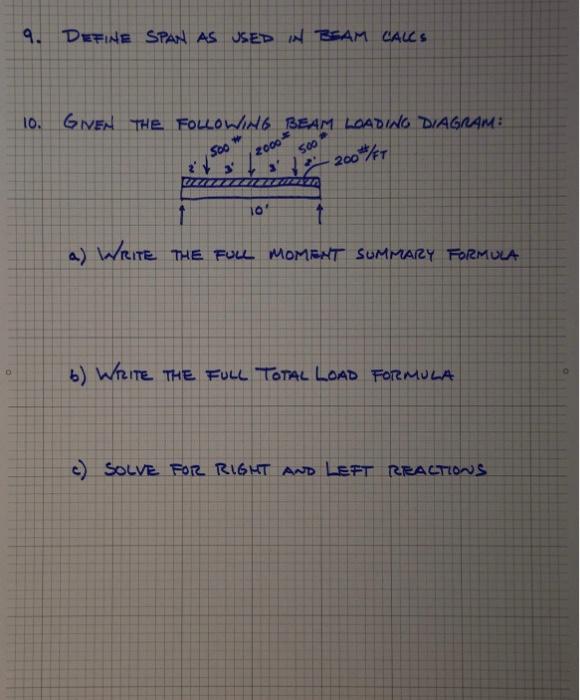 9. DEFINE SPAN AS USED IN BEAM CALCS
10. GIVEN THE FOLLOWING BEAM LOADING DIAGRAM:
500# 2000# 500#
2' 3' 3' 2' 200#/FT
10'
a) WRITE THE FULL MOMENT SUMMARY FORMULA
b) WRITE THE FULL TOTAL LOAD FORMULA
c) SOLVE FOR RIGHT AND LEFT REACTIONS